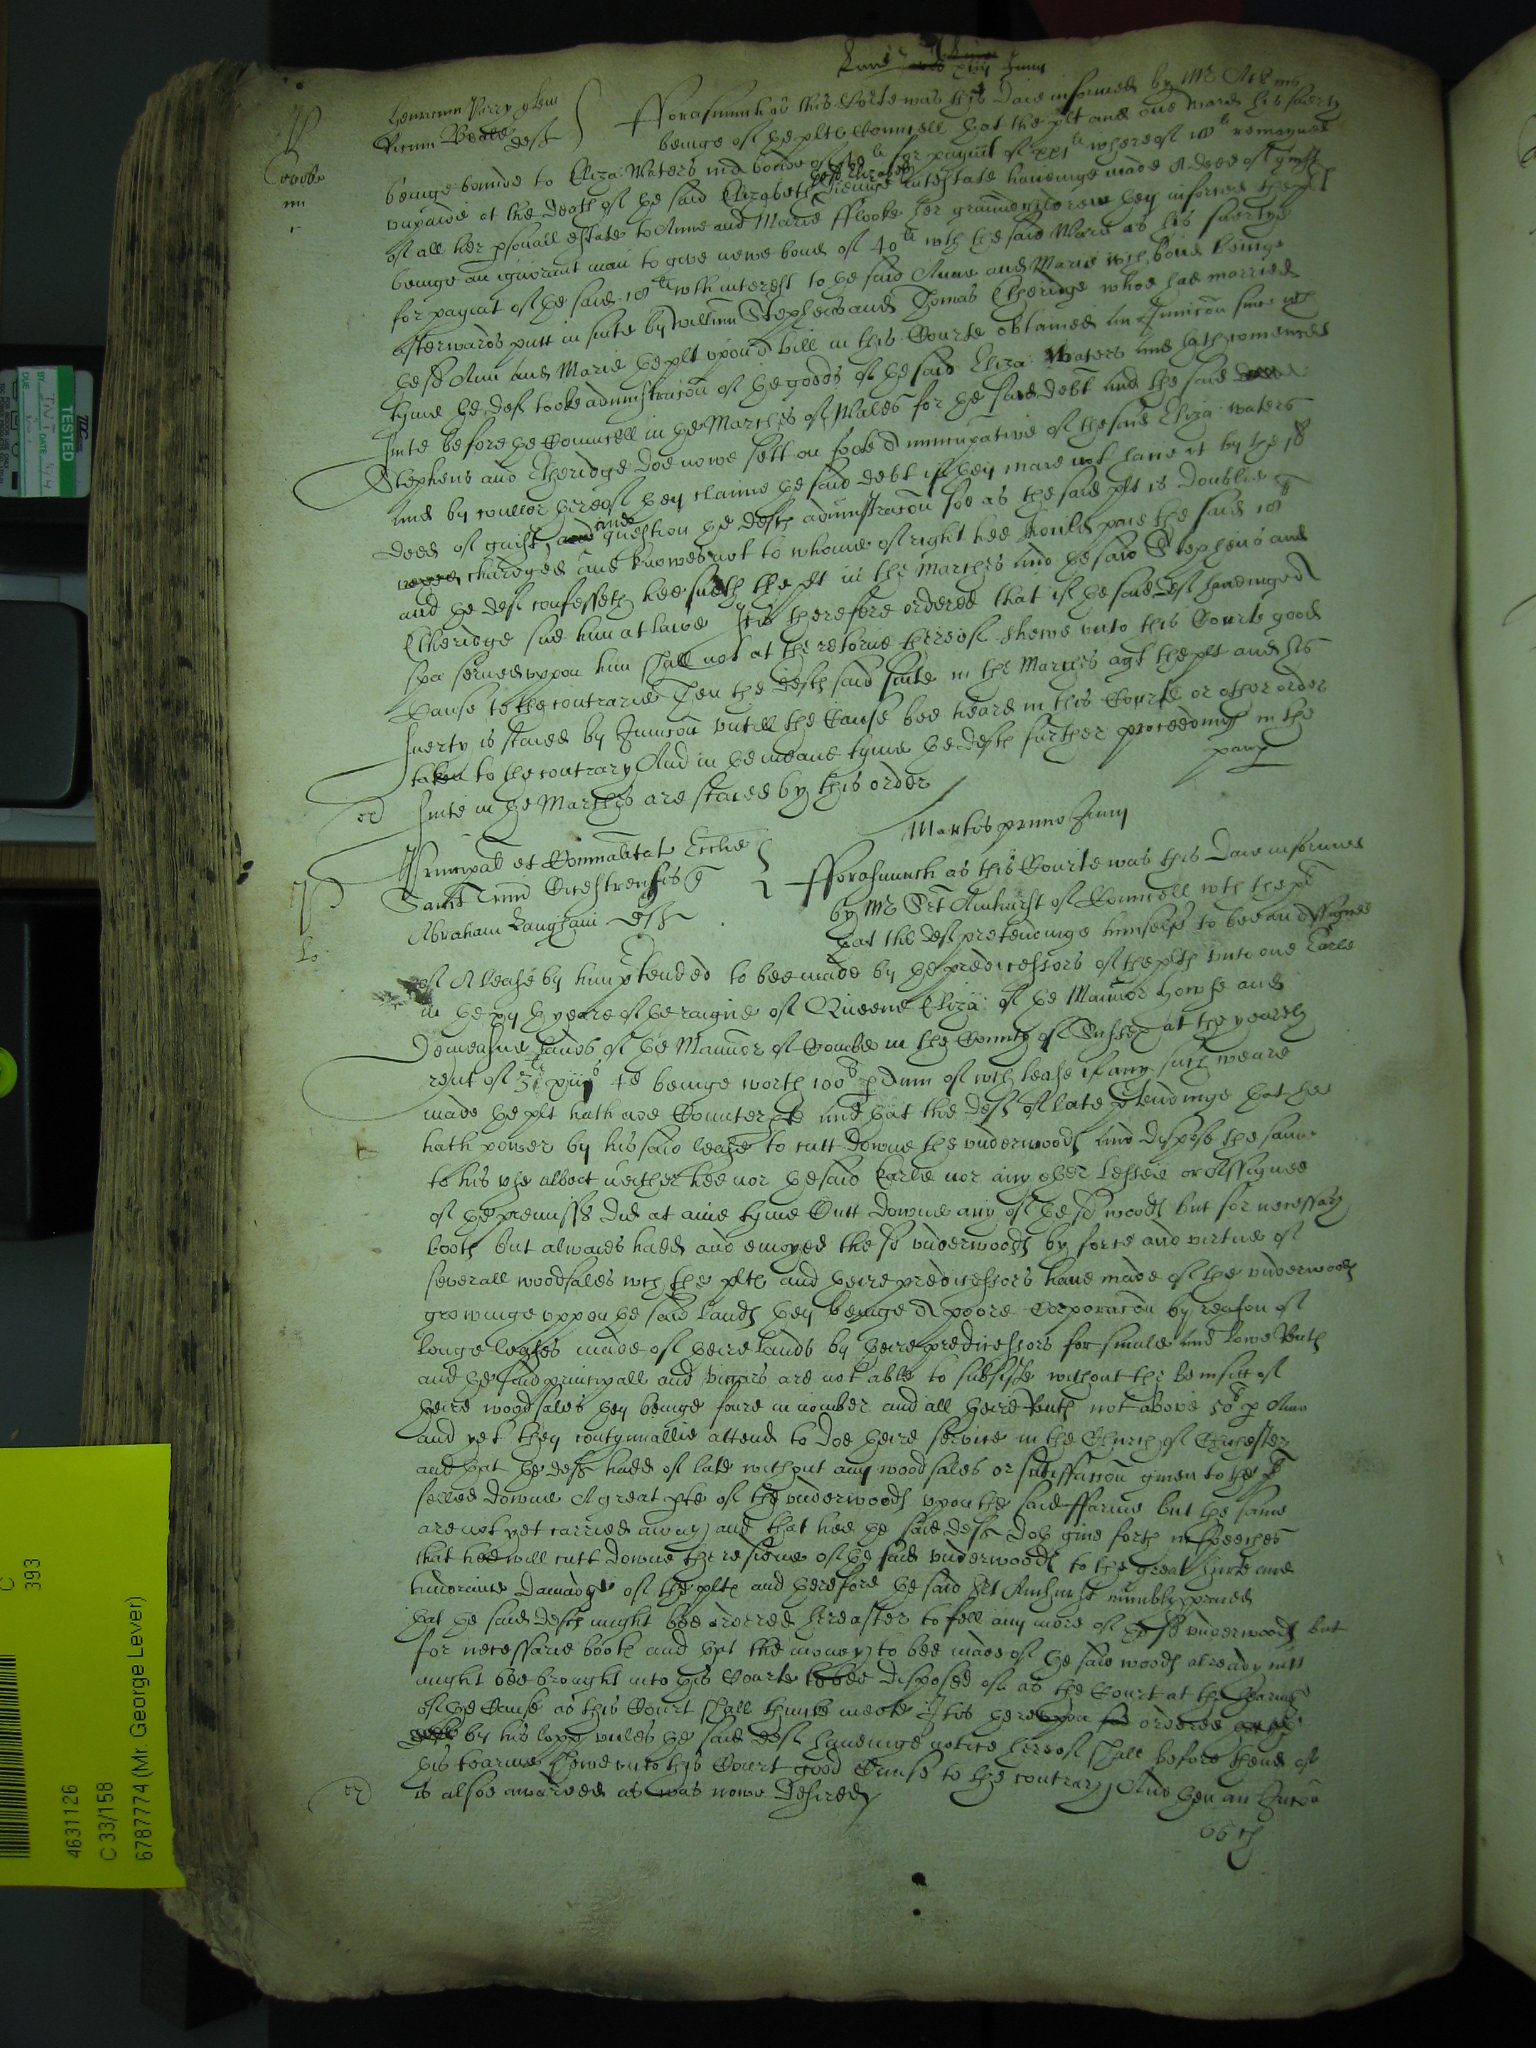 Henricum Perry quer
Beale deft
fforasmuch as this Court was this Daie informed by Mr
beinge of the plts Councell that the plt and one Ward his suerty
beinge bounde to Eliza: Waters in a bonde of for paymt of xxjli whereof 18li remayned
unpaide at the death of the said Elizabeth the sd Elizabeth dieinge intestate haveinge made A deed of guift
of all her psonall estate to Anne and Marie fflooke her graundchildren they informed the plt
beinge an ignorant man to give newe bond of 40li wth the said Ward as his suertye
for paymt of the said 18li wth interest to the said Anne and Marie wch bond beinge
afterwards putt in suite by Willim Stephens and Thomas Etheridge whoe had married
the sd Ann and Marie the plt upon a bill in this Courte obtained an Iniuncon since wch
tyme the deft tooke administracon of the goods of the said Eliza: Waters and hath comenced
suite before the Councell in the Marches of Wales for the said debt and the said
Stephens and Etheridge doe nowe sett on foote a nuncupative of the said Eliza: Waters
and by coullor thereof they claime the said debt if they maie not have it by the sd
deed of guift, and question the defts administracon soe as the said plt is doublie
charged and knowes not to whome of right hee should paie the said 18li
and the deft confesseth hee sueth the plt in the Marches and the said Stephens and
Etheridge sue him at lawe It is therefore ordered that if the said deft haveinge a
spa served uppon him shall not at the retorne thereof shewe unto this Court good
cause to the contrarie Then the defts said suite in the Marches agt the plt and his
suerty is staied by Iniuncon untill the Cause bee heard in this Courte or other order
taken to the contrary And in the meane tyme the defts further proceedings in the
suite in the Marches are staied by this order
Martis primo Junij
Principal et Communitat Ecclie
Sanct Trin Cicestrensis quer
Abraham Langham deft
fforasmuch as this Courte was this Daie informed
by Mr Sert Amhurst of Councell wth the plt
that the deft pretendinge himselfe to bee an Assignee
of A lease by him ptended to bee made by the predicessors of the plts unto one Earle
in the yeare of the raigne of Queene Eliza: of the Mannor howse and
Demeasne lands of the Mannor of Coombe in the County of Sussex at the yearely
rent of 3li beinge worth 100li p Ann of wch lease if any such weare
made the plt hath noe Counterpte and that the deft of late ptendinge that hee
hath power by his said lease to cutt downe the underwoods and dispose the same
to his use albeit neither hee nor the said Earle nor any other Lessee or Assignee
of the premisss did at anie tyme Cutt downe any of the sd woods but for necessary
boote but alwaies hadd and enioyed the sd underwoods by force and virtue of
severall woodsales wch the plts and theire predicessors have made of the underwoods
growinge uppon the said lands they beinge A poore Corporacon by reason of
longe leases made of theire lands by theire predicessors for smale and lowe Rents
and the said principall and vicars are not able to subsiste without the benefitt of
theire woodsales they beinge foure in nomber and all theire Rents not above 50li p Ann
and yet they contynuallie attend to doe theire service in the Church of Chichester
and that the deft hadd of late without any woodsales or satisffaccon given to the plt
felled downe A great pte of the underwoods upon the said ffarme but the same
are not yet carried away, and that hee the said deft doth give forth in speeches
that hee will cutt downe the residue of the said underwoods to the great hurte and
damadge of the plts and therefore the said Sert Amhurst humbly praied
that the said deft might bee ordered hereafter to fell any more of the sd underwoods but
for necessarie boote and that the money to bee made of the said woods already cutt
might bee brought into this Courte to bee disposed of as the Court at the hearing
of the Cause as this Court shall thinke meete It is thereupon ordered
by his lopp unles the said deft haveinge notice hereof shall before thend of
this tearme shewe unto this Court good Cause to the contrary, And then an Iniuncon
is alsoe awarded as was nowe desired
TESTED
4631126
C 33/158
6787774 (Mr. George Lever)
C
393